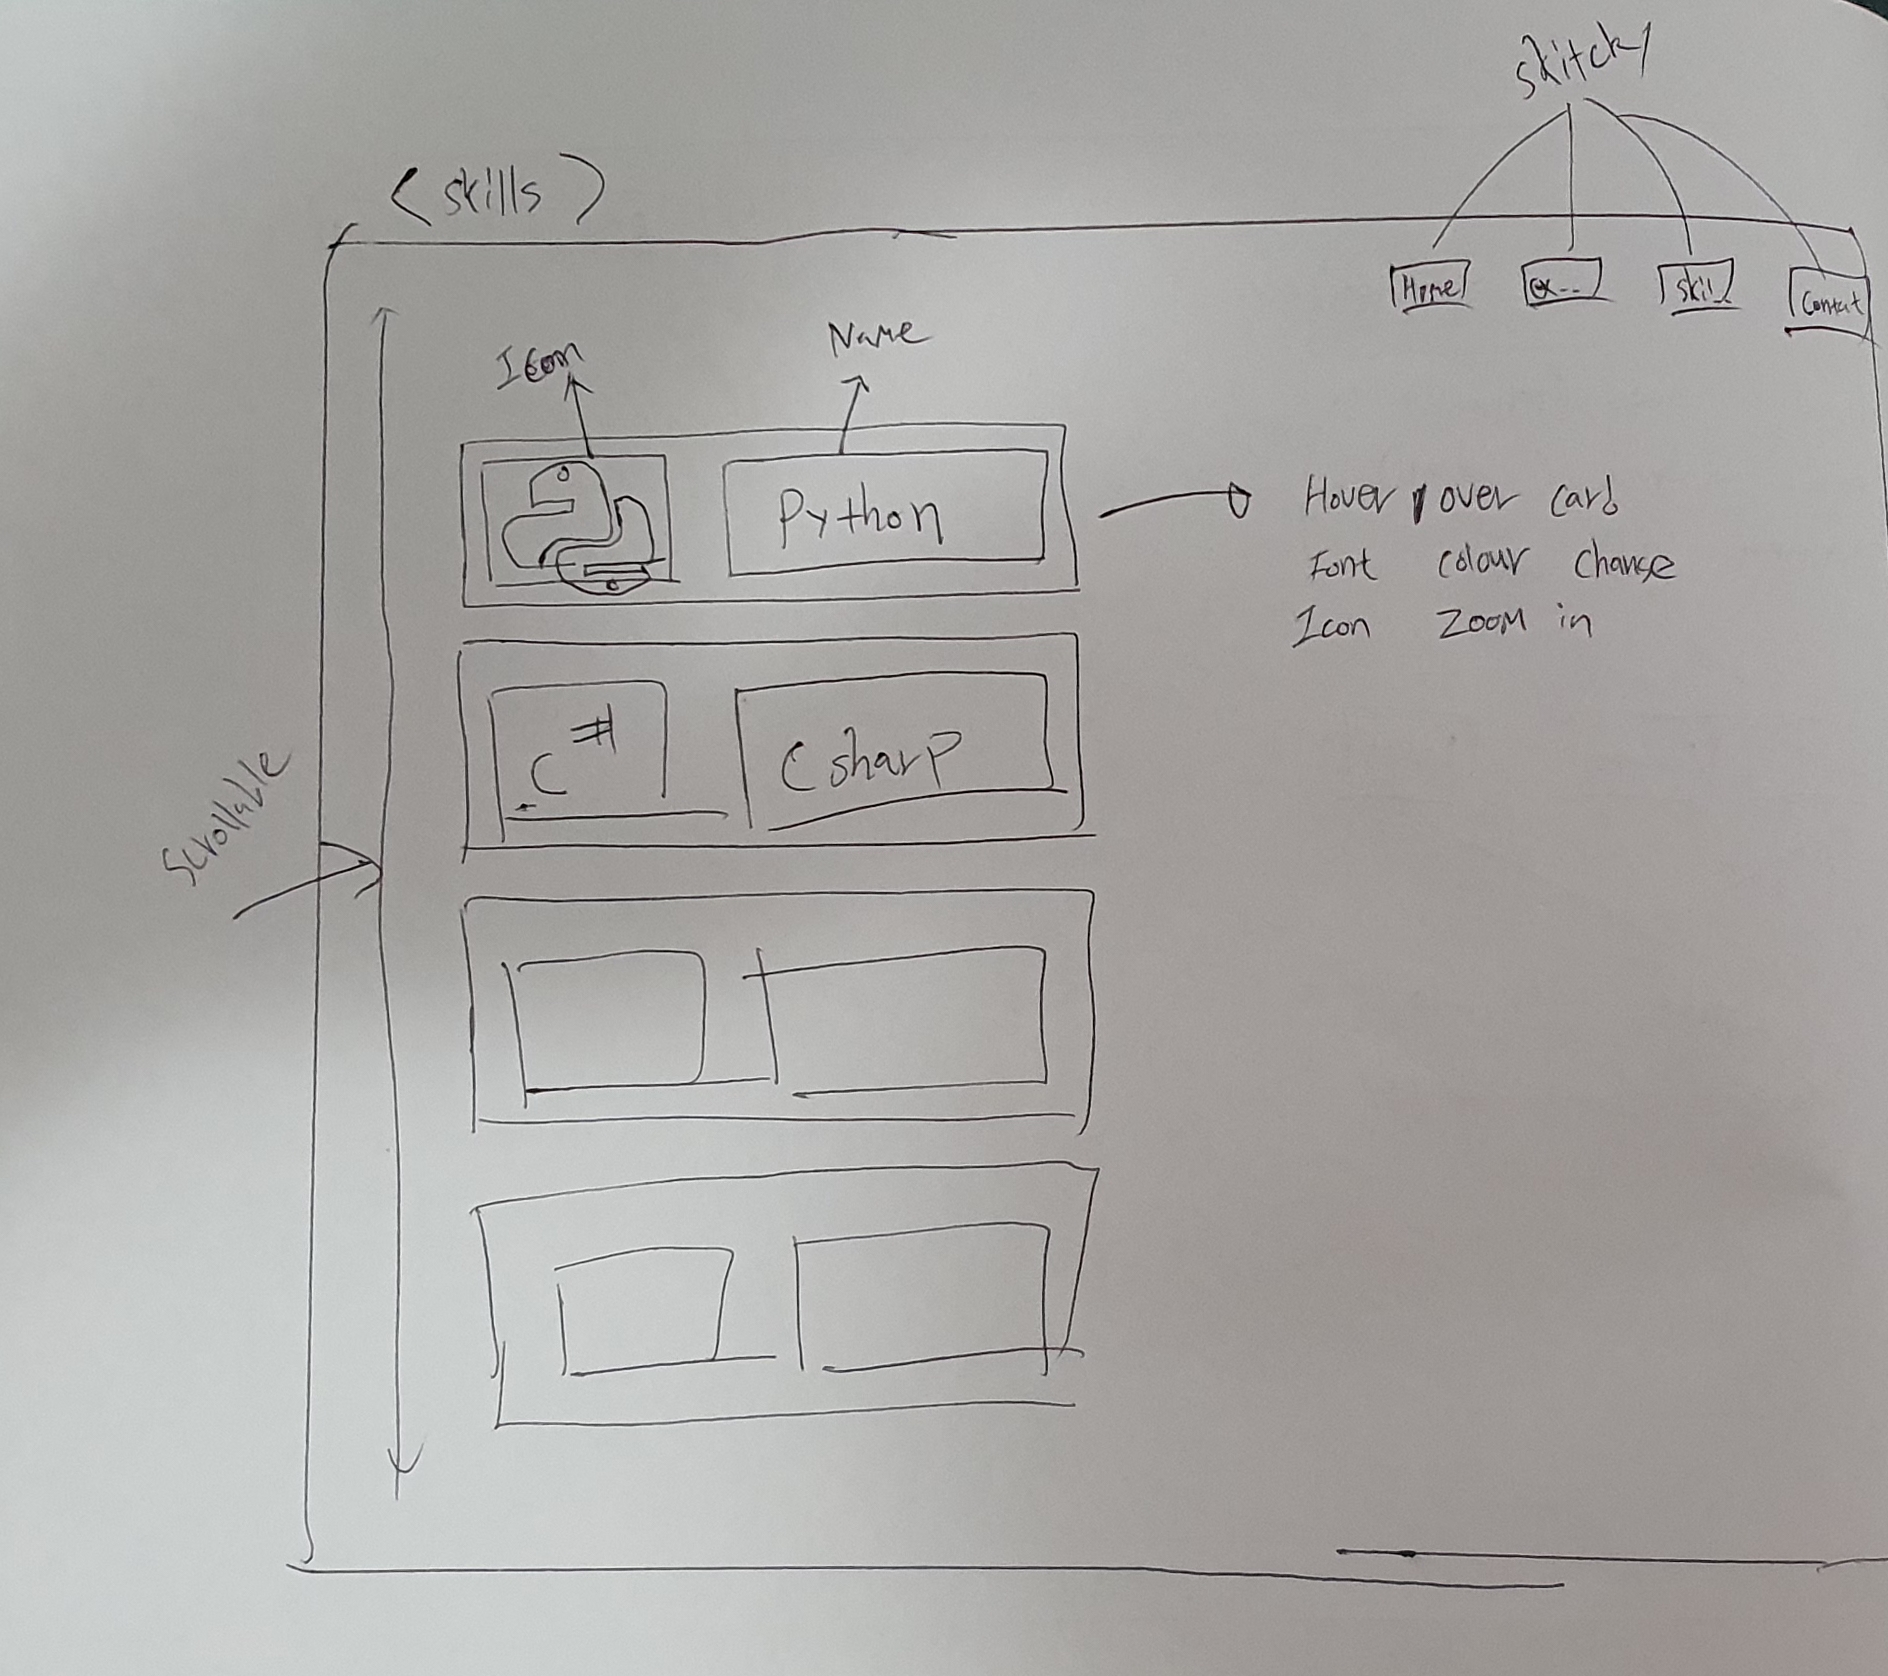 skitcky
(skills)
Home
ex...
Skil..
Contat
Icon
Name
Python
Hover over card
Font colour change
Icon Zoom in
C#
Csharp
Scrollable